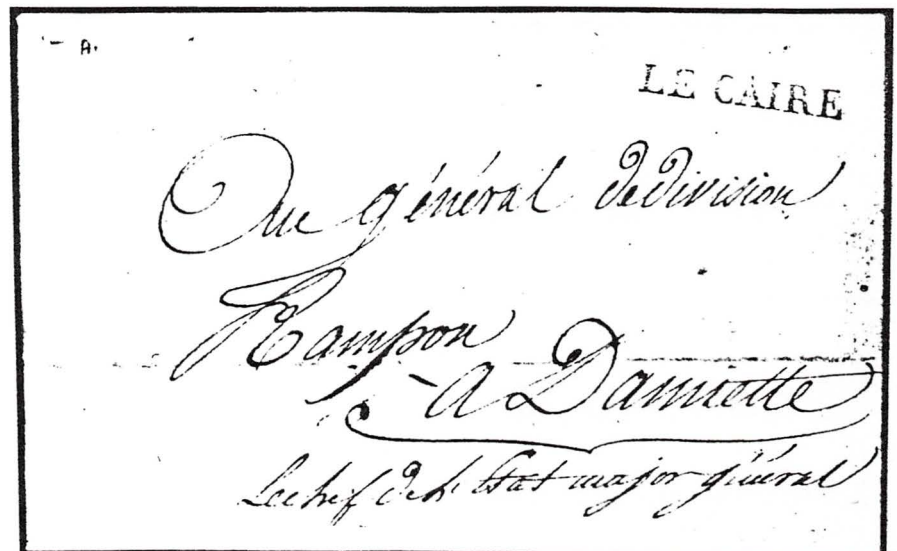 A.
LE CAIRE
Au général de division
Rampon
à Damiette
Le chef de l'Etat major général